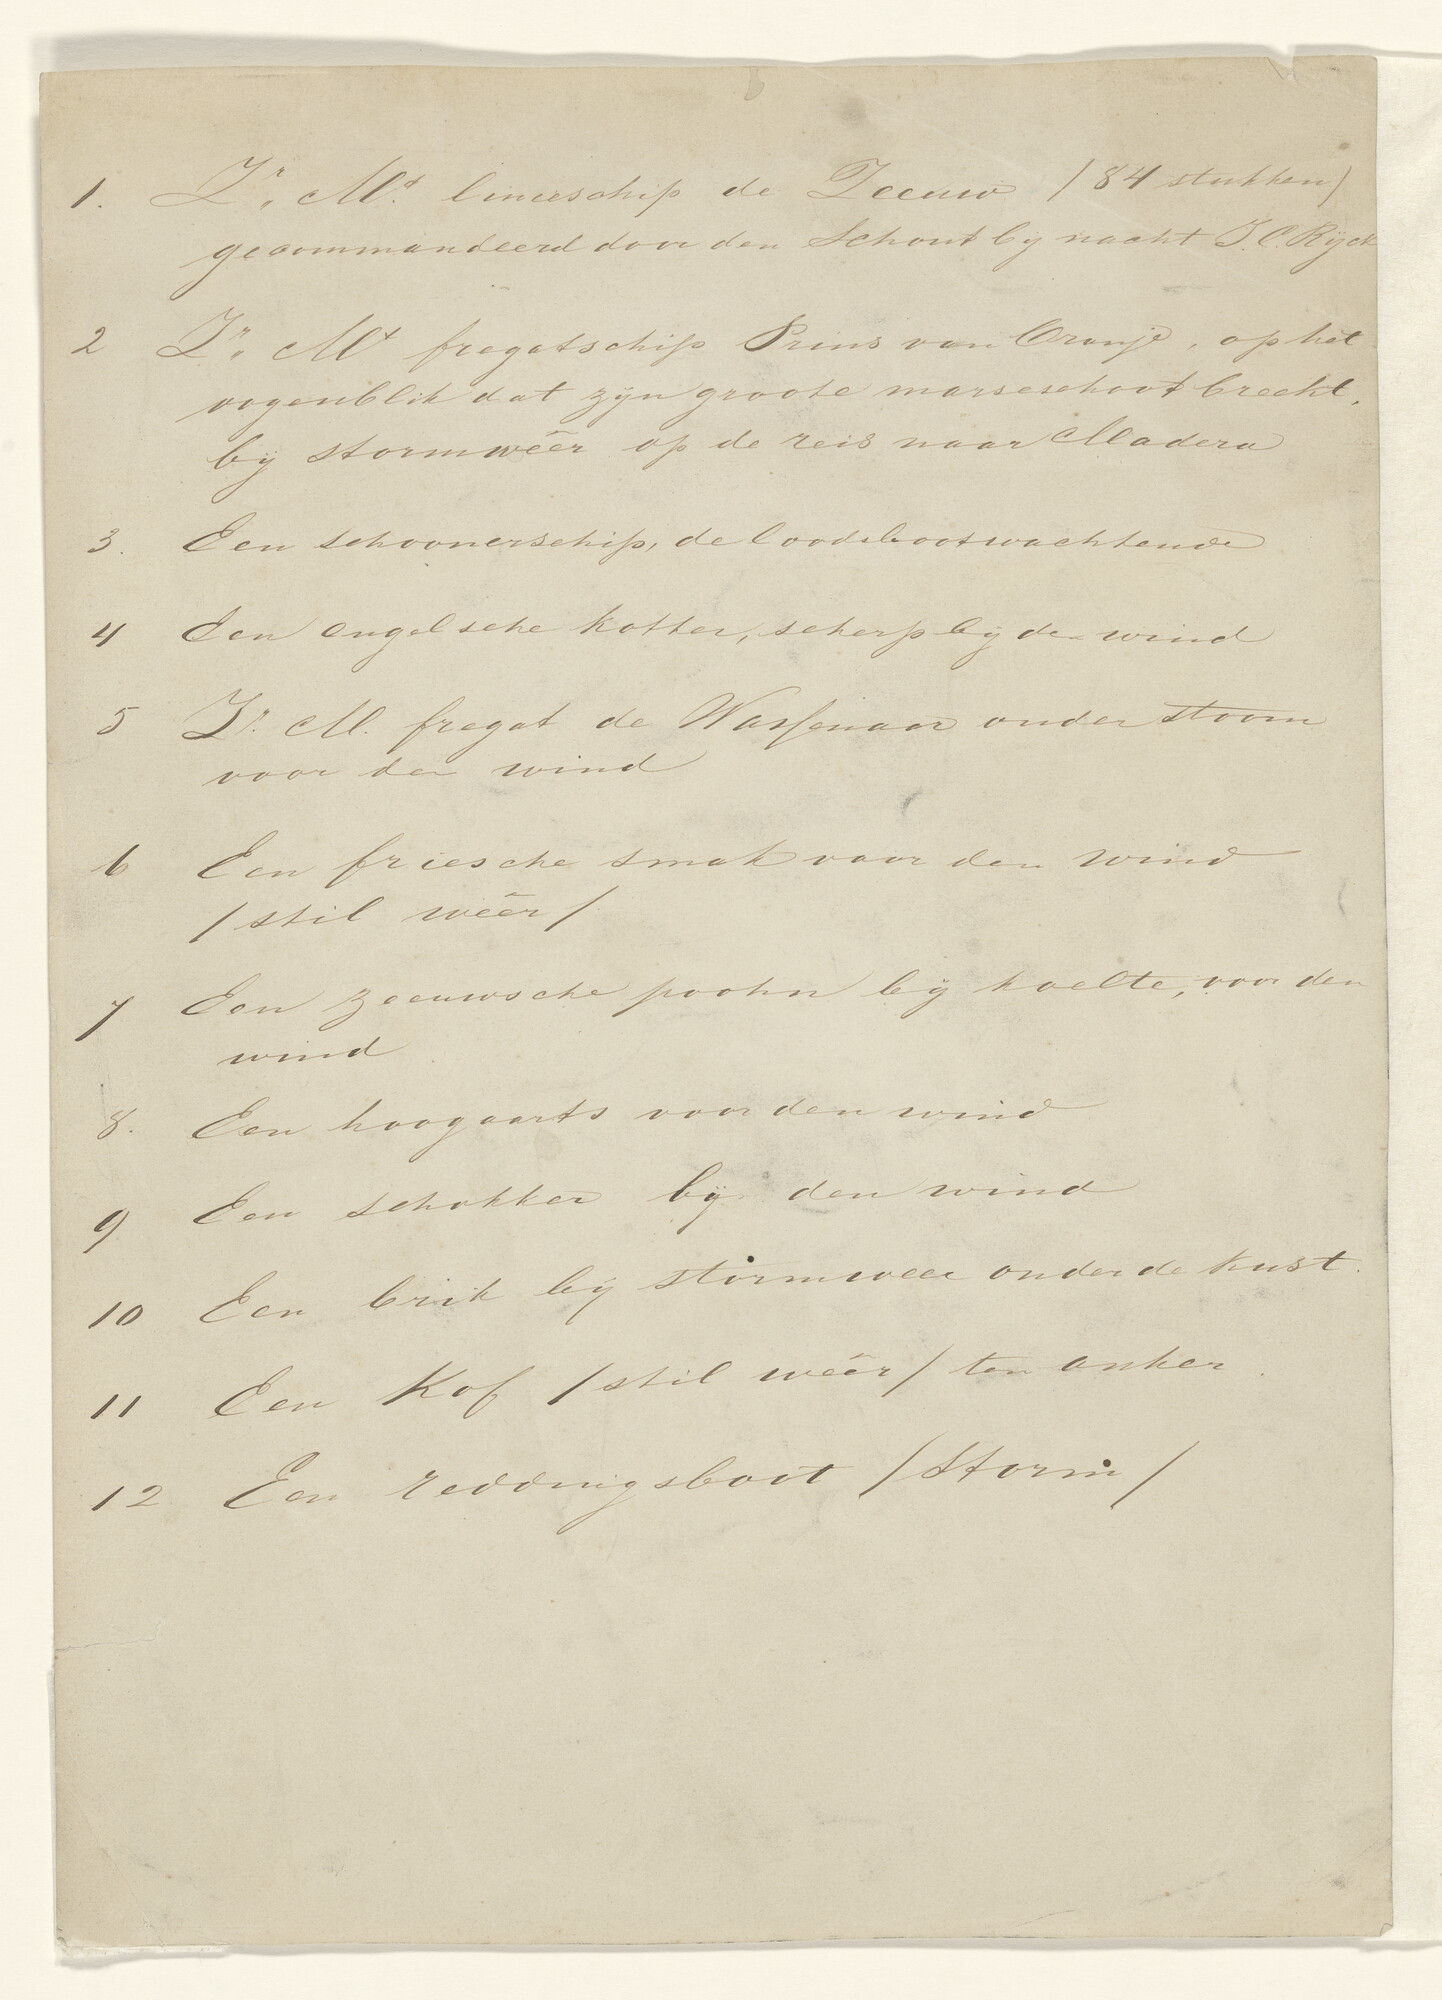 1. Zr. Mt. linieschip de Zeeuw /84 stukken/
gecommandeerd door den Schout by nacht J. C. Rijck
2 Zr. Mt fregatschip Prins van Oranje, op het
oogenblik dat zijn groote marseschoot breekt,
bij stormwêer op de reis naar Madera
3. Een schoonerschip, de loodsboot wachtende
4 Een engelsche kotter, scherp bij de wind
5 Zr. M. fregat de Wassenaar onder stoom
voor den wind
6 Een friesche smak voor den wind
/stil wêer/
7 Een zeeuwsche poohn bij koelte, voor den
wind
8. Een hoogaarts voor den wind
9 Een schokker bij den wind
10 Een brik bij stormweer onder de kust.
11 Een Kof /stil wêer/ ten anker.
12 Een reddingsboot /Storm/